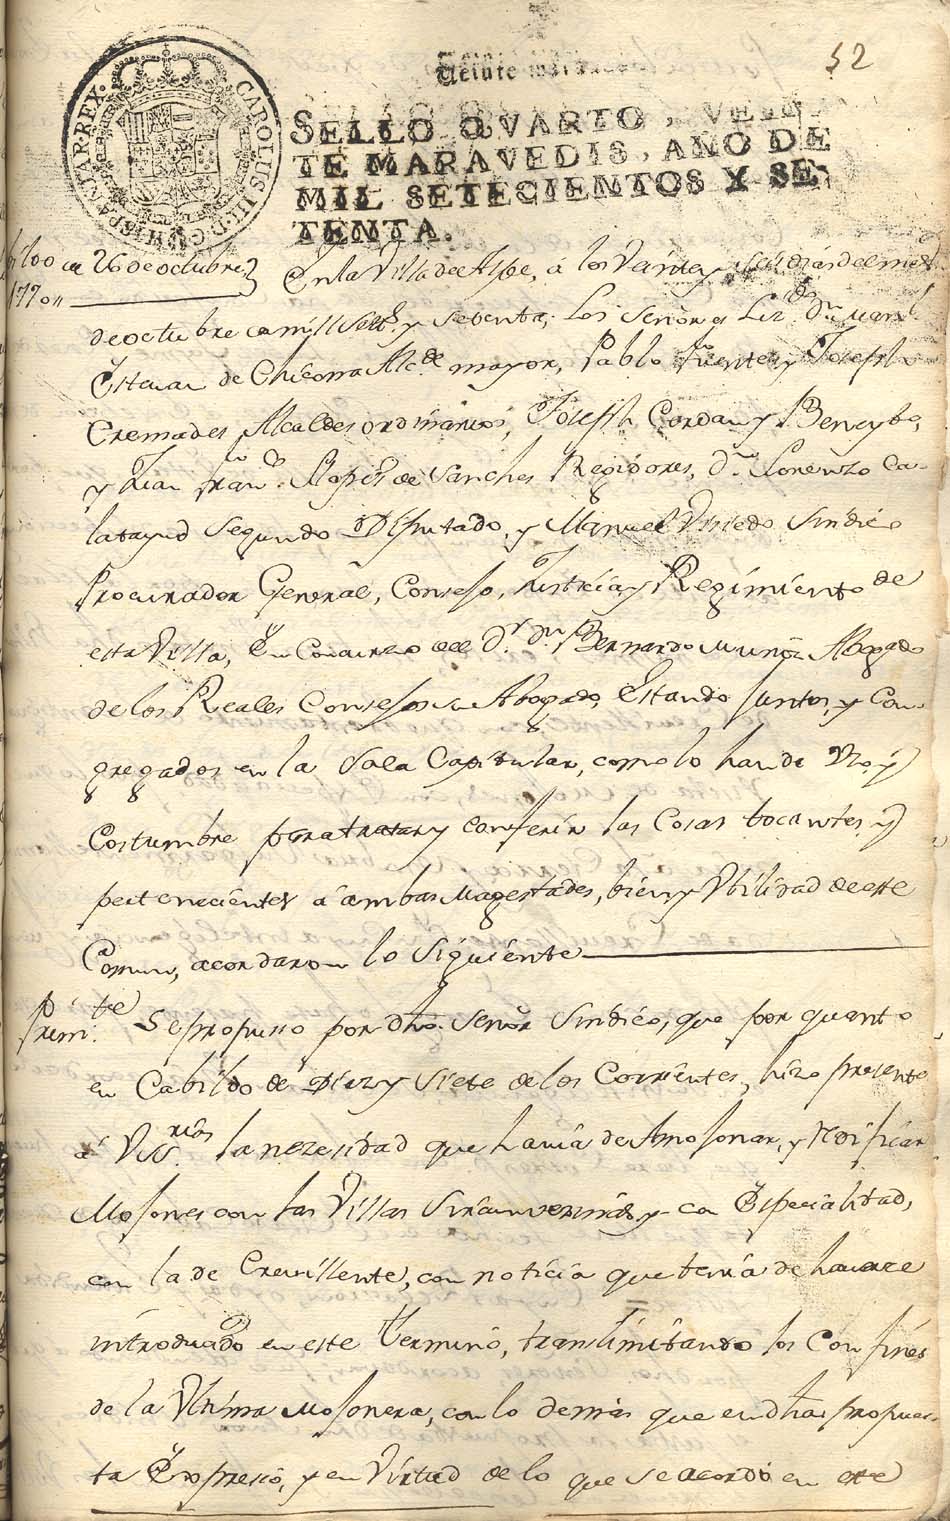 52
Veinte maravedis.
CAROLUS III D. G. HISPANIAR. REX.
SELLO QVARTO, VEIN
TE MARAVEDIS, AÑO DE
MIL SETECIENTOS Y SE
TENTA.
26 de octubre
1770
En la Villa de Aspe, á los Veinte y seis dias del mes
de octubre de mill Setts. y setenta; Los Señores Lizdo. Dn. Manl.
Estevan de Chicorra Alcde. mayor, Pablo Fuentes y Joseph
Cremades Alcaldes ordinarios, Joseph Cerdan y Beneyto,
y Juan Franco. Llopis de Sanches Regidores, Dn. Lorenzo Ca-
latayud Segundo Diputado, y Manuel Uvledo Sindico
Procurador General, Consejo, Justicia y Regimiento de
esta Villa, En Concurso del Dr. Dn. Bernardo Muñoz Abogado
de los Reales Consejos su Abogado, Estando Juntos, y Con-
gregados en la Sala Capitular, como lo han de Vso, y
Costumbre para tratar y conferir las Cosas tocantes, y
pertenecientes á ambas Magestades, bien y Vtilidad de este
Comun, acordaron lo Siguiente
Primte.
Se propuso por dho. Señor Sindico, que por quanto
en Cabildo de Diez y Siete de los Corrientes, hizo presente
á VSSrias la nezesidad que havia de Amojonar, y Redificar
Mojones con las Villas Sircunvezinas y con Especialidad,
con la de Crevillente, con noticia que tenia de haverse
introducido en este Termino, translimitando los Confines
de la Vltima Mojonera, con lo demas que en dha. propues-
ta Expresó, y en Virtud de lo que se acordó en este